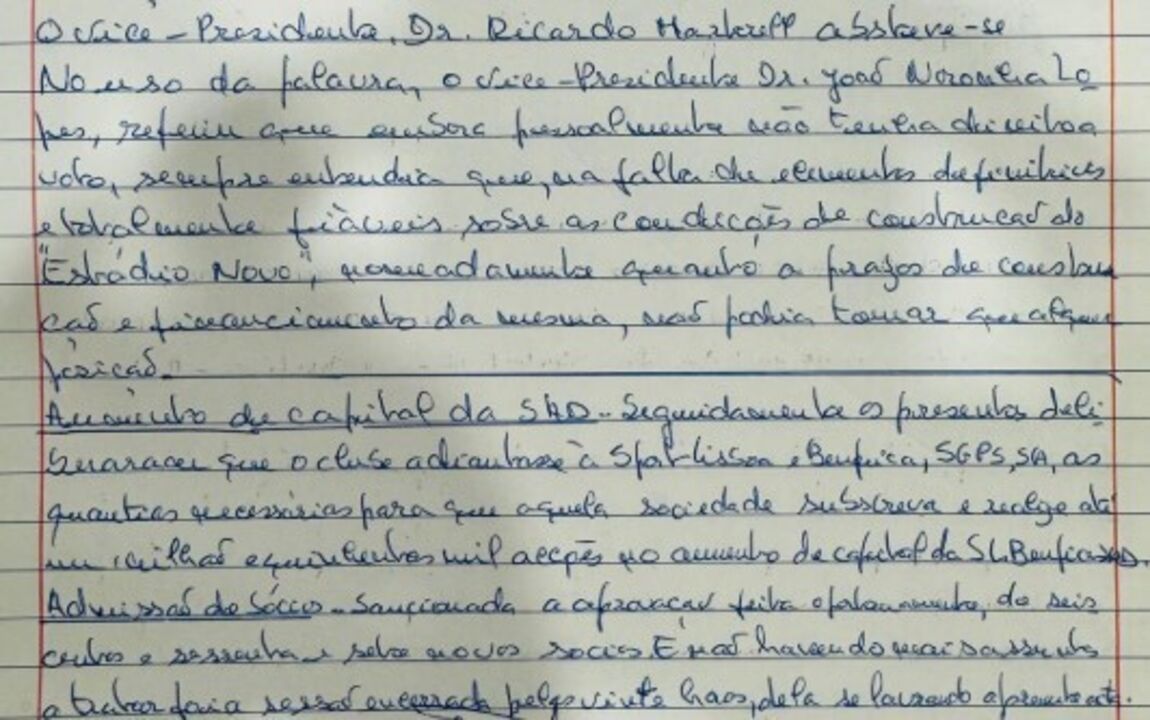 O Vice-Presidente, Dr. Ricardo absteve-se
No uso da palavra, o Vice-Presidente Dr. João Noronha Lo
pes, referiu que embora pessoalmente não tenha direito a
voto, sempre entendia que, na falta de elementos definitivos
e totalmente fiàveis sobre as condicções de construcaõ do
"Estádio Novo", nomeadamente quanto a prazos de constru
caõ e financiamento da mesma, naõ podia tomar qualquer
posicaõ.
Aumento de capital da SAD - Seguidamente os presentes deli
beraram que o clube adiantasse à Sport Lisboa e Benfica, SGPS, SA, as
quantias necessárias para que aquela sociedade subscreva e realize até
um milhaõ e quinhentas mil acções no aumento de capital da SL Benfica SAD.
Admissaõ de Sócio - Sancionada a aprovaçaõ feita oportunamente, de seis
centos e sessenta e sete novos socios. E naõ havendo mais assuntos
a tratar foi a sessaõ encerrada pelas vinte horas, dela se lavrando a presente acta.